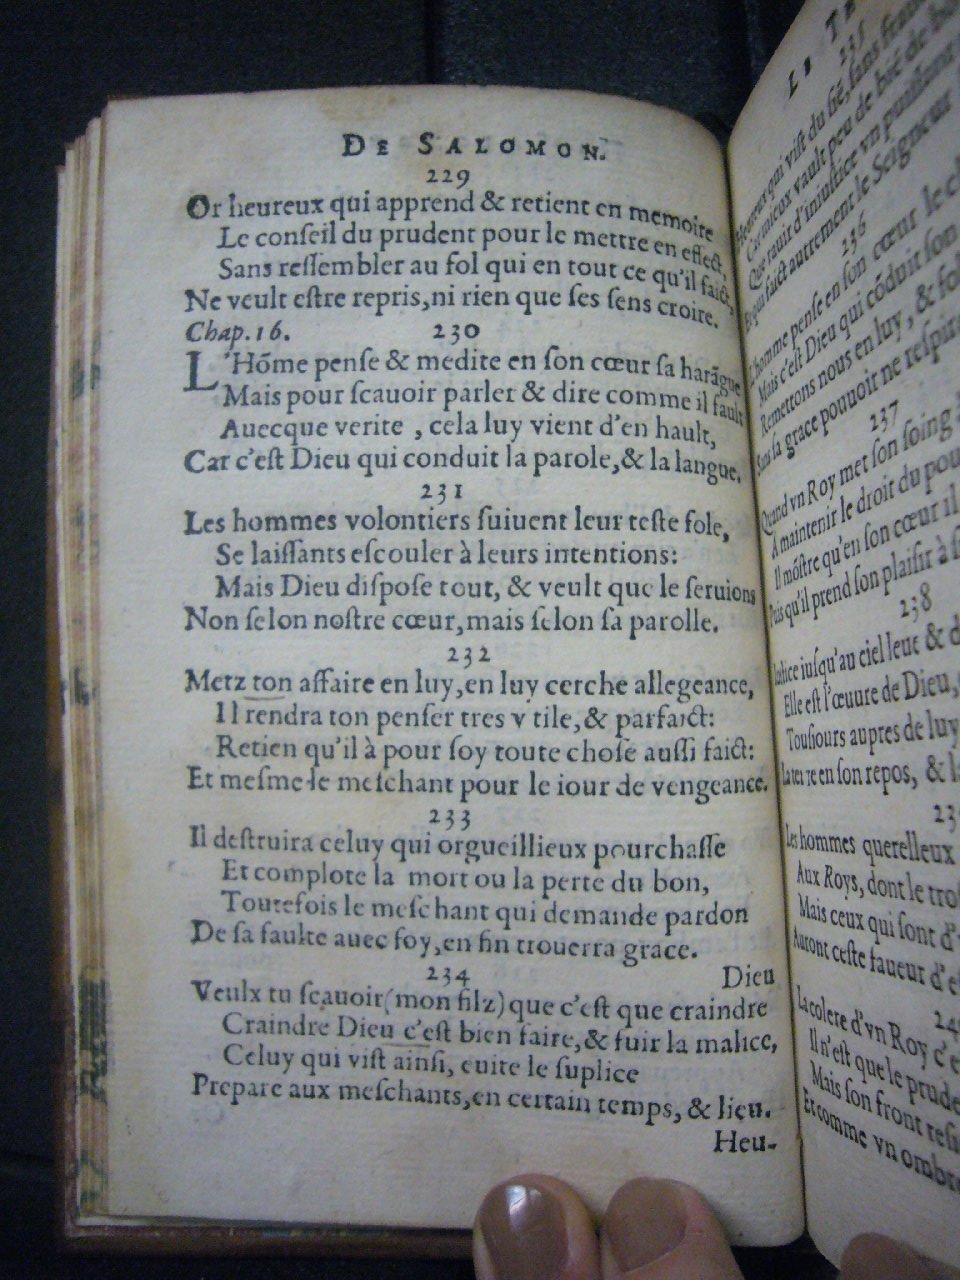 DE SALOMON.
229
Or heureux qui apprend & retient en memoire
Le conſeil du prudent pour le mettre en effect,
Sans reſſembler au fol qui en tout ce qu'il faict,
Ne veult eſtre repris, ni rien que ſes ſens croire.
Chap. 16. 230
L'Hõme penſe & medite en ſon cœur ſa harãgue
Mais pour ſcauoir parler & dire comme il fault
Auecque verite , cela luy vient d'en hault,
Car c'eſt Dieu qui conduit la parole, & la langue.
231
Les hommes volontiers ſuiuent leur teſte fole,
Se laiſſants eſcouler à leurs intentions:
Mais Dieu diſpoſe tout, & veult que le ſeruions
Non ſelon noſtre cœur, mais ſelon ſa parolle.
232
Metz ton affaire en luy, en luy cerche allegeance,
Il rendra ton penſer tres vtile, & parfaict:
Retien qu'il à pour ſoy toute choſe auſſi faict:
Et meſme le meſchant pour le iour de vengeance.
233
Il deſtruira celuy qui orgueillieux pourchaſſe
Et complote la mort ou la perte du bon,
Toutefois le meſchant qui demande pardon
De ſa faulte auec foy, en fin trouerra grace.
234 Dieu
Veulx tu ſcauoir (mon filz) que c'eſt que craindre
Craindre Dieu c'eſt bien faire, & fuir la malice,
Celuy qui viſt ainſi, euite le ſuplice
Prepare aux meſchants, en certain temps, & lieu.
Heu-
LE
235
Heureux qui viſt du ſiẽ, ſans
Car mieux vault peu de biẽ de
Que rauir d'iniuſtice vn puiſſant
autrement le Seigneur
236
L'homme penſe en ſon cœur le
Mais c'eſt Dieu qui cõduit ſon
Remettons nous en luy, &
Sans ſa grace pouuoir ne
237
Quand vn Roy met ſon ſoing
A maintenir le droit du
Il mõſtre qu'en ſon cœur il
Puis qu'il prend ſon plaiſir à
238
iuſqu'au ciel leue &
Elle eſt l'œuure de Dieu,
Touſiours aupres de luy
La terre en ſon repos, &
Les hommes querelleux
Aux Roys, dont le
Mais ceux qui ſont
Auront ceſte faueur
La colere d'vn Roy
Il n'eſt que le
Mais ſon front
Et comme vn ombre